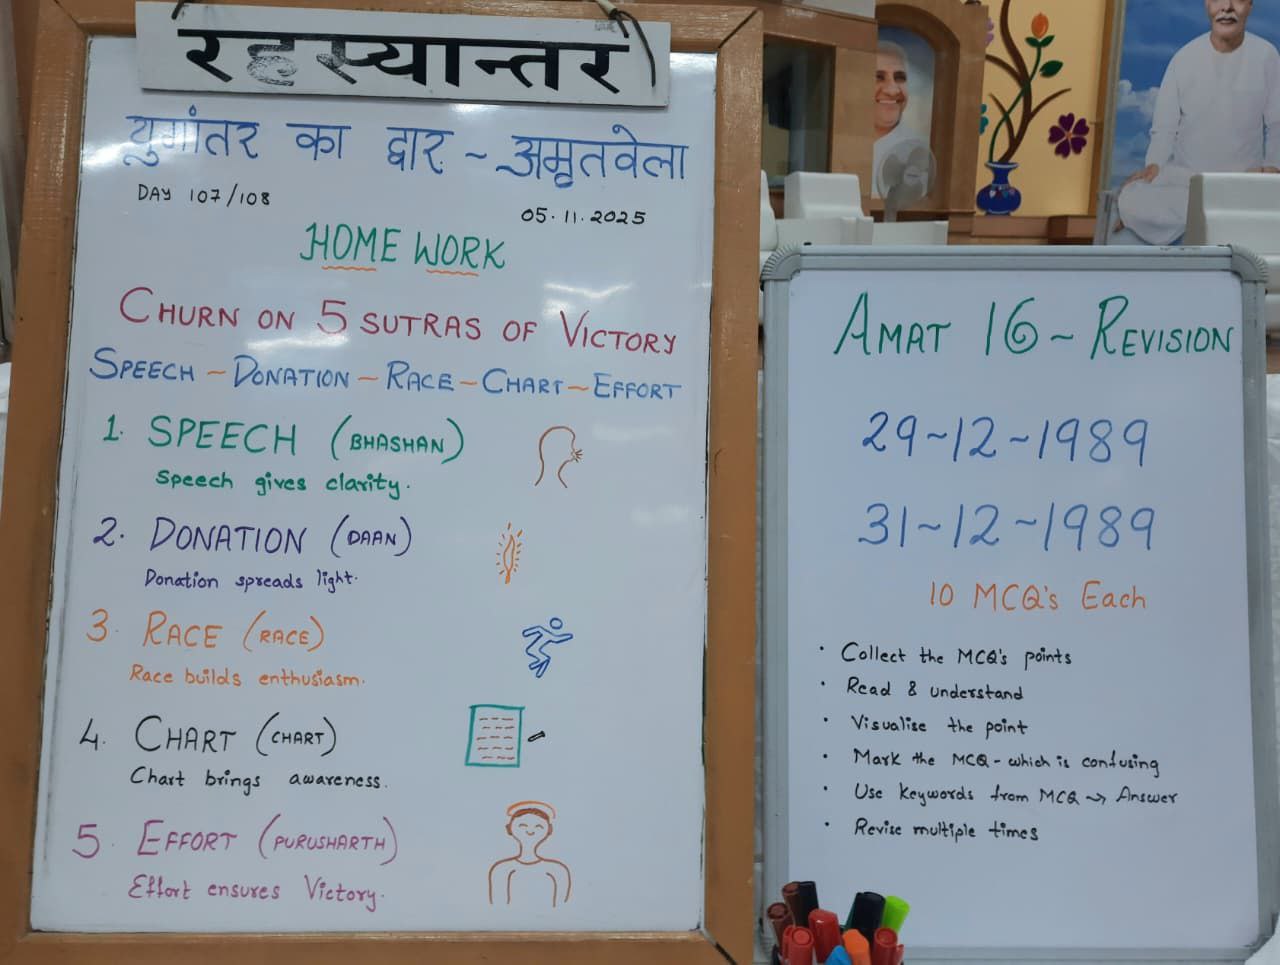 रहस्यान्तर
युगांतर का द्वार ~ अमृतवेला
DAY 107/108
05.11.2025
HOME WORK
CHURN ON 5 SUTRAS OF VICTORY
SPEECH ~ DONATION ~ RACE ~ CHART ~ EFFORT
1. SPEECH (BHASHAN)
Speech gives clarity.
2. DONATION (DAAN)
Donation spreads light.
3. RACE (RACE)
Race builds enthusiasm.
4. CHART (CHART)
Chart brings awareness.
5. EFFORT (PURUSHARTH)
Effort ensures Victory.
AMAT 16 ~ REVISION
29~12~1989
31~12~1989
10 MCQ's Each
• Collect the MCQ's points
• Read & understand
• Visualise the point
• Mark the MCQ - which is confusing
• Use keywords from MCQ → Answer
• Revise multiple times